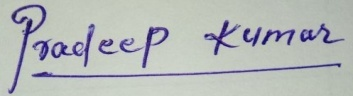 Pradeep Kumar